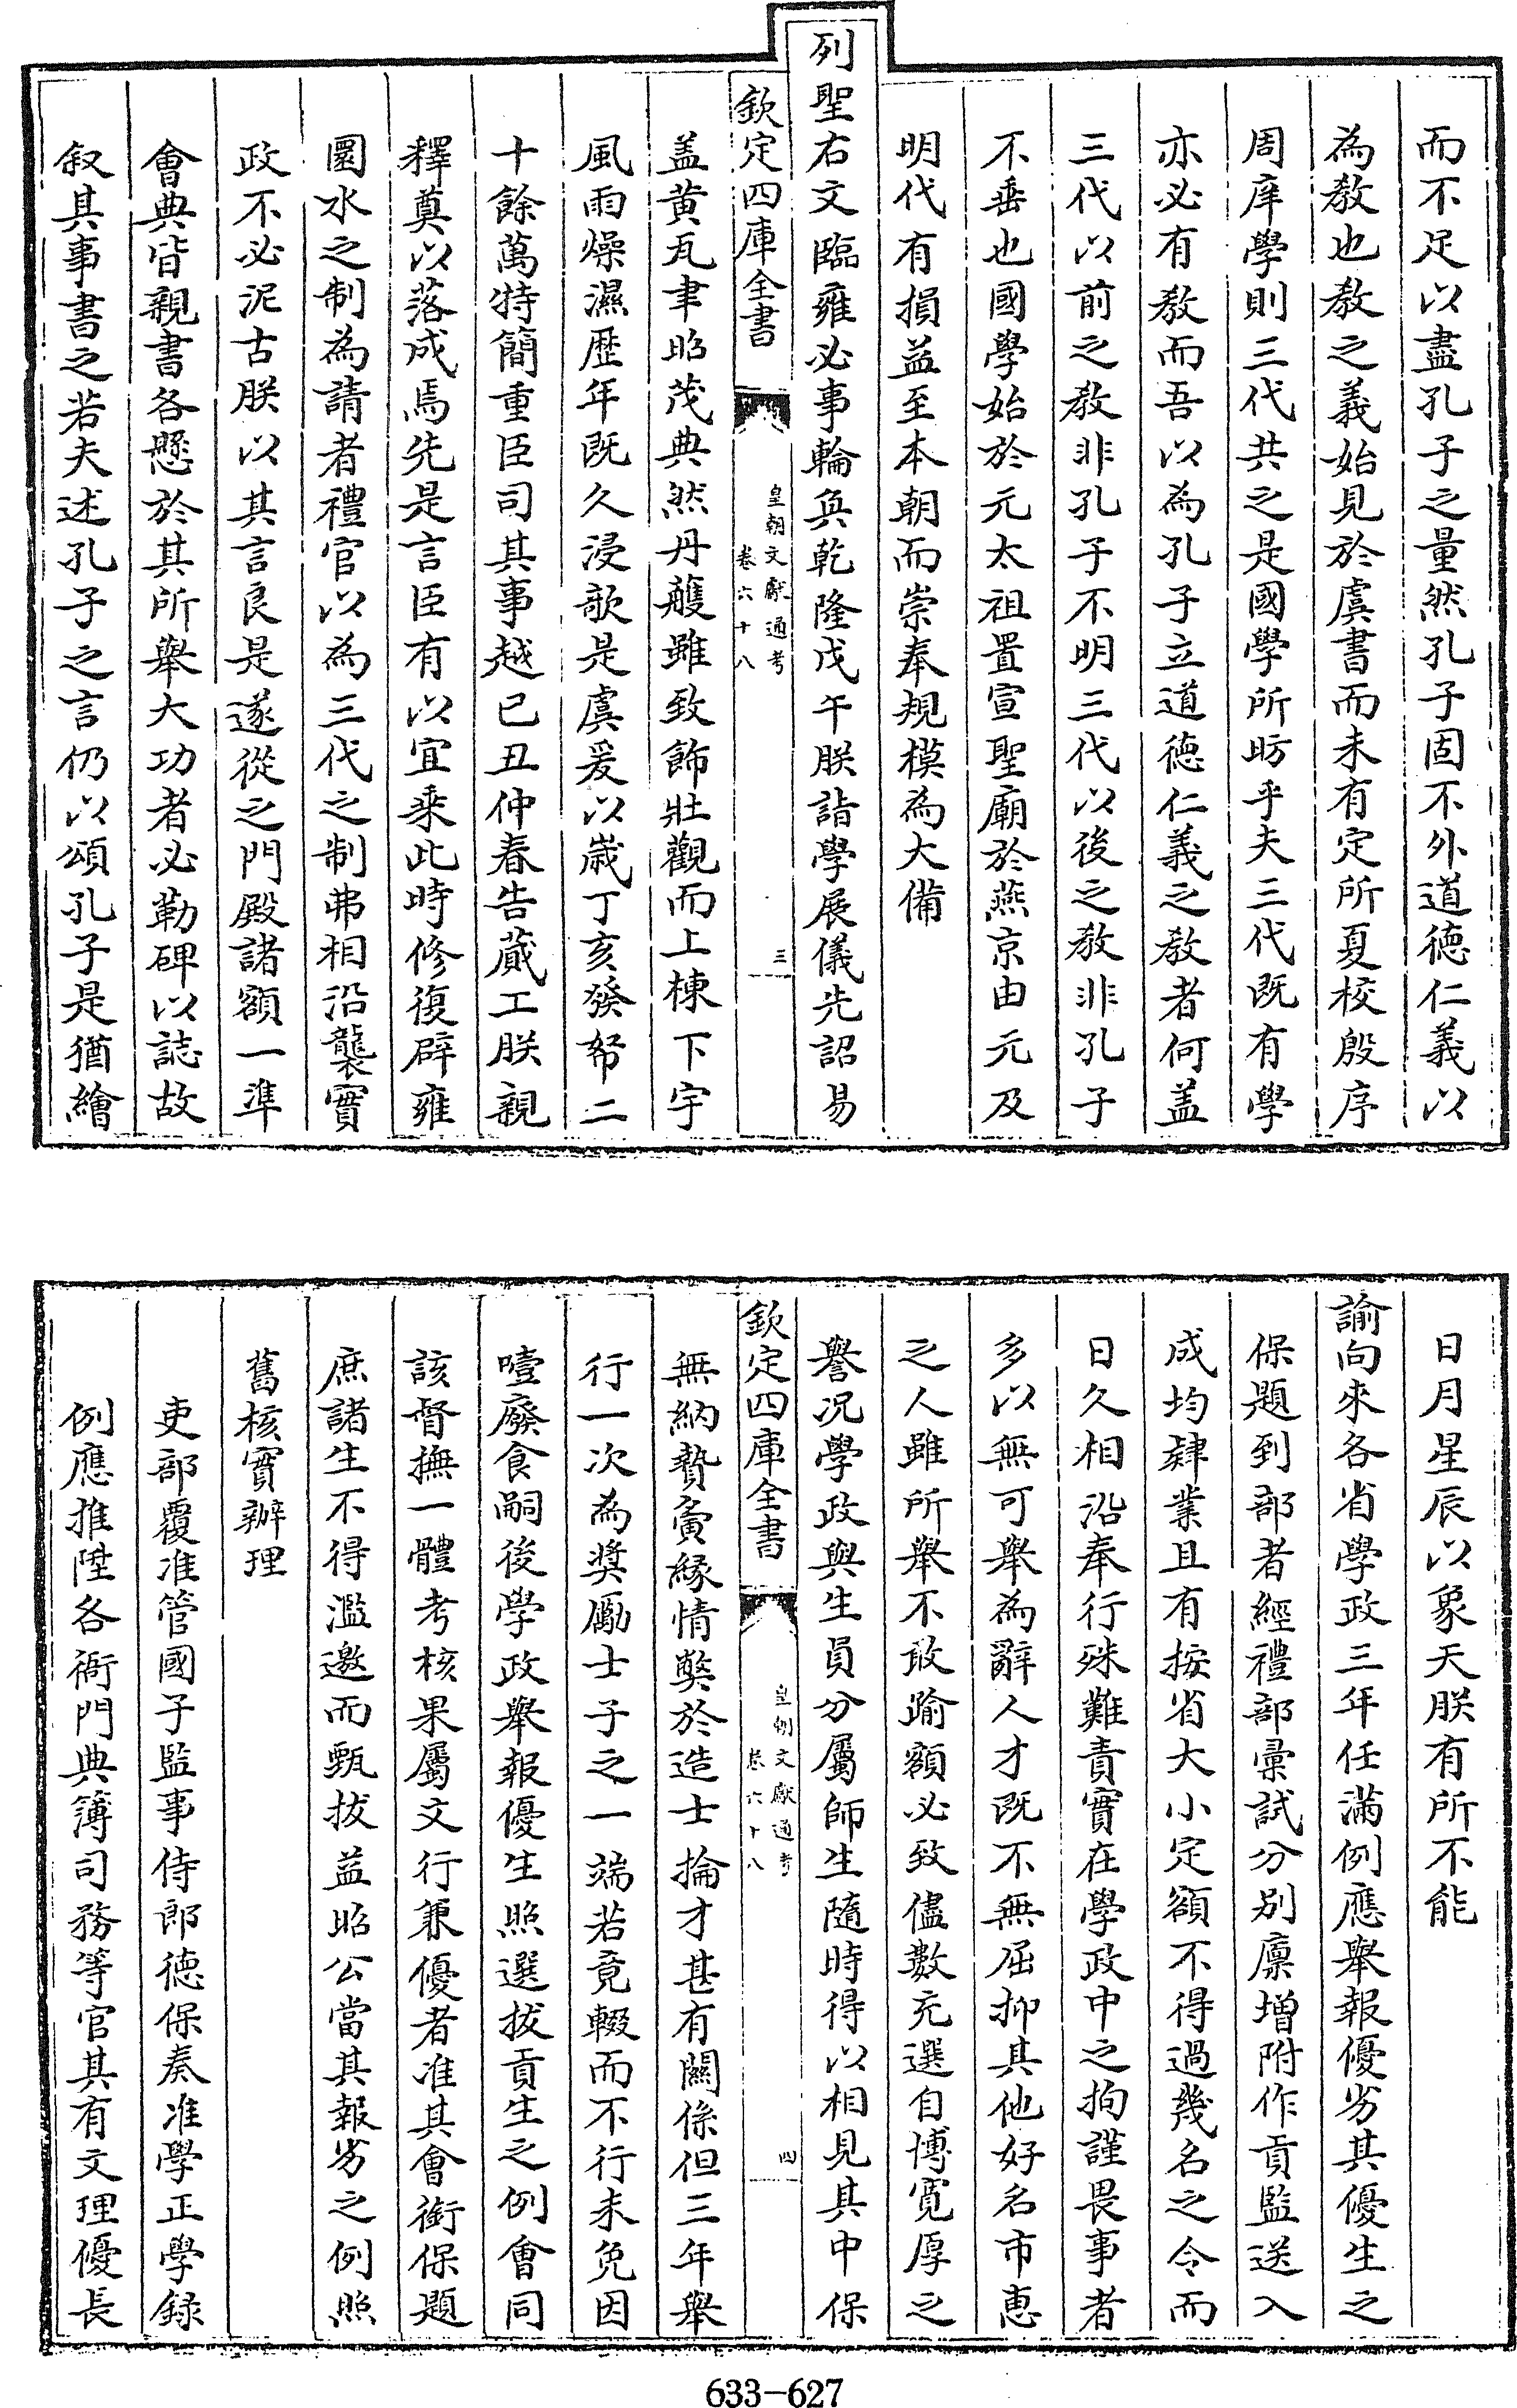 而不足以盡孔子之量然孔子固不外道德仁義以
為教也教之義始見於虞書而未有定所夏校殷序
周庠學則三代共之是國學所昉乎夫三代既有學
亦必有教而吾以為孔子立道德仁義之教者何盖
三代以前之教非孔子不明三代以後之教非孔子
不垂也國學始於元太祖置宣聖廟於燕京由元及
明代有損益至本朝而崇奉規模為大備
列聖右文臨雍必事輪奐乾隆戊午朕詣學展儀先詔易
欽定四庫全書
皇朝文獻通考
卷六十八
三
盖黄瓦聿昭茂典然丹雘雖致飾壯觀而上棟下宇
風雨燥濕歴年既久浸欹是虞爰以歳丁亥發帑二
十餘萬特簡重臣司其事越已丑仲春告蕆工朕親
釋奠以落成焉先是言臣有以宜乘此時修復辟雍
圜水之制為請者禮官以為三代之制弗相沿襲實
政不必泥古朕以其言良是遂從之門殿諸額一準
會典皆親書各懸於其所舉大功者必勒碑以誌故
叙其事書之若夫述孔子之言仍以頌孔子是猶繪
日月星辰以象天朕有所不能
諭向來各省學政三年任滿例應舉報優劣其優生之
保題到部者經禮部彚試分别廪增附作貢監送入
成均肄業且有按省大小定額不得過幾名之令而
日久相沿奉行殊難責實在學政中之拘謹畏事者
多以無可舉為辭人才既不無屈抑其他好名市惠
之人雖所舉不敢踰額必致儘數充選自博寛厚之
譽况學政與生員分屬師生隨時得以相見其中保
欽定四庫全書
皇朝文獻通考
卷六十八
四
無納贄夤縁情獘於造士掄才甚有關係但三年舉
行一次為奬勵士子之一端若竟輟而不行未免因
噎廢食嗣後學政舉報優生照選拔貢生之例會同
該督撫一體考核果屬文行兼優者准其會銜保題
庶諸生不得濫邀而甄拔益昭公當其報劣之例照
舊核實辦理
吏部覆准管國子監事侍郎德保奏准學正學録
例應推陞各衙門典簿司務等官其有文理優長
633-627